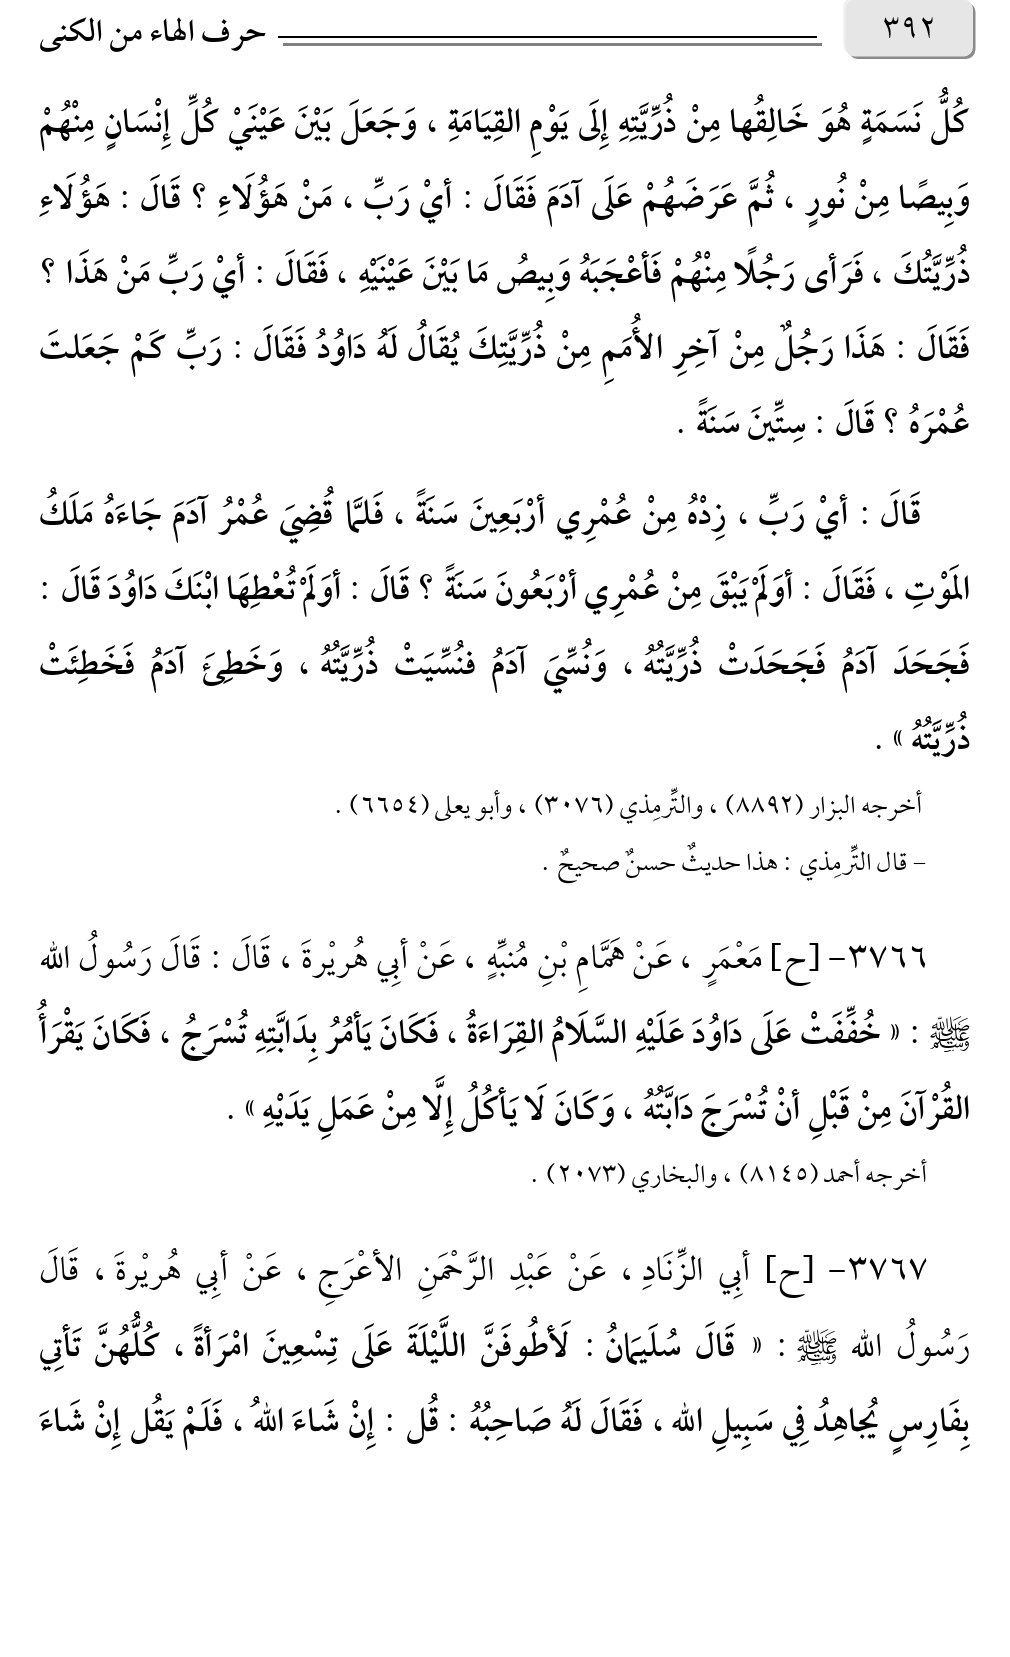 ٣٩٢ حرف الهاء من الكنى
كُلُّ نَسَمَةٍ هُوَ خَالِقُها مِنْ ذُرِّيَّتِهِ إِلَى يَوْمِ القِيَامَةِ ، وَجَعَلَ بَيْنَ عَيْنَيْ كُلِّ إِنْسَانٍ مِنْهُمْ
وَبِيصًا مِنْ نُورٍ ، ثُمَّ عَرَضَهُمْ عَلَى آدَمَ فَقَالَ : أيْ رَبِّ ، مَنْ هَؤُلَاءِ ؟ قَالَ : هَؤُلَاءِ
ذُرِّيَّتُكَ ، فَرَأى رَجُلًا مِنْهُمْ فَأعْجَبَهُ وَبِيصُ مَا بَيْنَ عَيْنَيْهِ ، فَقَالَ : أيْ رَبِّ مَنْ هَذَا ؟
فَقَالَ : هَذَا رَجُلٌ مِنْ آخِرِ الأُمَمِ مِنْ ذُرِّيَّتِكَ يُقَالُ لَهُ دَاوُدُ فَقَالَ : رَبِّ كَمْ جَعَلتَ
عُمْرَهُ ؟ قَالَ : سِتِّينَ سَنَةً .
قَالَ : أيْ رَبِّ ، زِدْهُ مِنْ عُمْرِي أرْبَعِينَ سَنَةً ، فَلمَّا قُضِيَ عُمْرُ آدَمَ جَاءَهُ مَلَكُ
المَوْتِ ، فَقَالَ : أوَلَمْ يَبْقَ مِنْ عُمْرِي أرْبَعُونَ سَنَةً ؟ قَالَ : أوَلَمْ تُعْطِهَا ابْنَكَ دَاوُدَ قَالَ :
فَجَحَدَ آدَمُ فَجَحَدَتْ ذُرِّيَّتُهُ ، وَنُسِّيَ آدَمُ فنُسِّيَتْ ذُرِّيَّتُهُ ، وَخَطِئَ آدَمُ فَخَطِئَتْ
ذُرِّيَّتُهُ » .
أخرجه البزار (٨٨٩٢) ، والتِّرمِذي (٣٠٧٦) ، وأبو يعلى (٦٦٥٤) .
– قال التِّرمِذي : هذا حديثٌ حسنٌ صحيحٌ .
٣٧٦٦– [ح] مَعْمَرٍ ، عَنْ هَمَّامِ بْنِ مُنبِّهٍ ، عَنْ أبِي هُريْرةَ ، قَالَ : قَالَ رَسُولُ الله
ﷺ : « خُفِّفَتْ عَلَى دَاوُدَ عَلَيْهِ السَّلَامُ القِرَاءَةُ ، فَكَانَ يَأمُرُ بِدَابَّتِهِ تُسْرَجُ ، فَكَانَ يَقْرَأُ
القُرْآنَ مِنْ قَبْلِ أنْ تُسْرَجَ دَابَّتُهُ ، وَكَانَ لَا يَأكُلُ إِلَّا مِنْ عَمَلِ يَدَيْهِ » .
أخرجه أحمد (٨١٤٥) ، والبخاري (٢٠٧٣) .
٣٧٦٧– [ح] أبِي الزِّنَادِ ، عَنْ عَبْدِ الرَّحْمَنِ الأعْرَجِ ، عَنْ أبِي هُريْرةَ ، قَالَ
رَسُولُ الله ﷺ : « قَالَ سُلَيمَانُ : لَأطُوفَنَّ اللَّيْلَةَ عَلَى تِسْعِينَ امْرَأةً ، كُلُّهُنَّ تَأتِي
بِفَارِسٍ يُجاهِدُ فِي سَبِيلِ الله ، فَقَالَ لَهُ صَاحِبُهُ : قُل : إِنْ شَاءَ اللهُ ، فَلَمْ يَقُل إِنْ شَاءَ